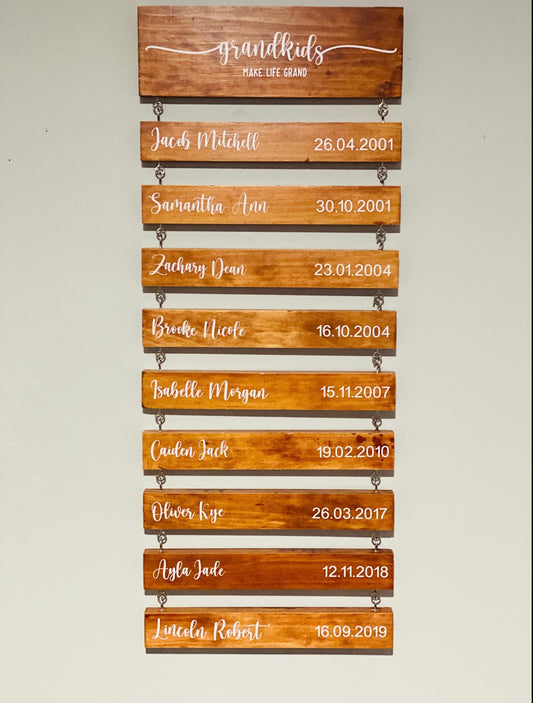 grandkids
MAKE LIFE GRAND
Jacob Mitchell 26.04.2001
Samantha Ann 30.10.2001
Zachary Dean 23.01.2004
Brooke Nicole 16.10.2004
Isabelle Morgan 15.11.2007
Caiden Jack 19.02.2010
Oliver Kye 26.03.2017
Ayla Jade 12.11.2018
Lincoln Robert 16.09.2019